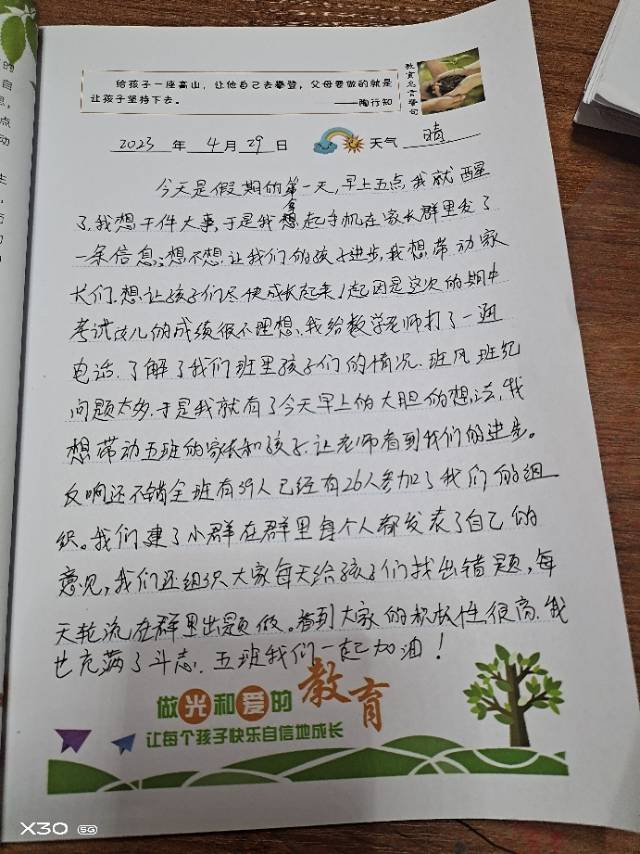 给孩子一座高山，让他自己去攀登，父母要做的就是
让孩子坚持下去。 ——陶行知
教育名言警句
2023 年 4 月 29 日 天气 晴
今天是假期的第一天，早上五点我就醒
了，我想干件大事，于是我拿起手机在家长群里发了
一条信息；想不想让我们的孩子进步，我想带动家
长们，想让孩子们尽快成长起来！起因是这次的期中
考试女儿的成绩很不理想，我给数学老师打了一通
电话，了解了我们班里孩子们的情况，班风班纪
问题太多，于是我就有了今天早上的大胆的想法，我
想带动五班的家长和孩子，让老师看到我们的进步。
反响还不错全班有39人已经有26人参加了我们的组
织。我们建了小群在群里每个人都发表了自己的
意见，我们还组织大家每天给孩子们找出错题，每
天轮流在群里出题做。看到大家的积极性很高，我
也充满了斗志，五班我们一起加油！
做光和爱的教育
让每个孩子快乐自信地成长
X30 5G